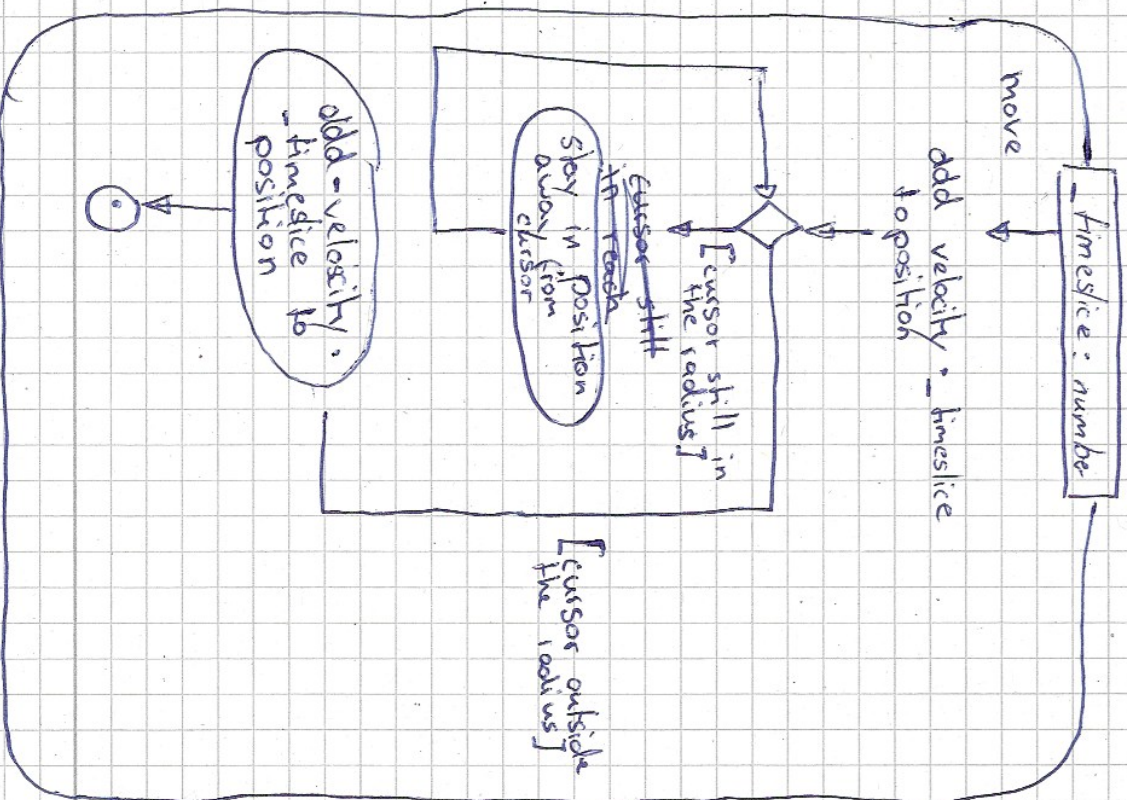 _timeslice: number
move
add velocity · _timeslice
to position
[cursor still in
the radius]
cursor still
in reach
stay in position
away from
cursor
[cursor outside
the radius]
add - velocity ·
_timeslice to
position